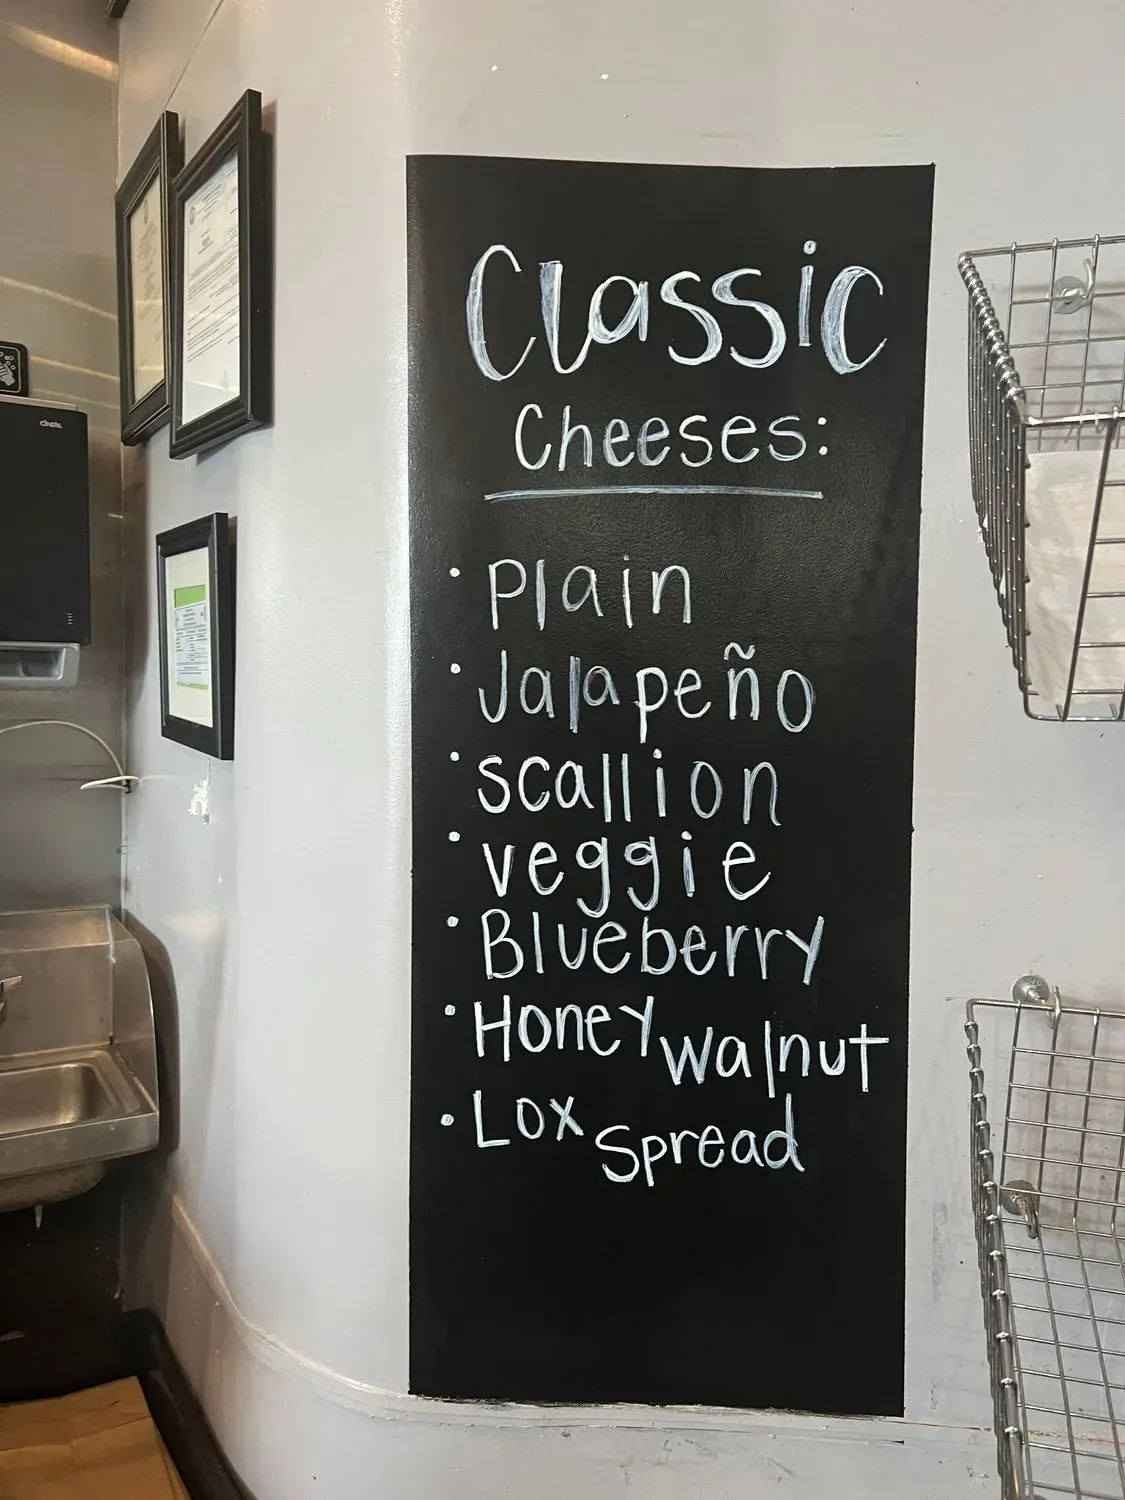 Classic
Cheeses:
• Plain
• Jalapeño
• scallion
• veggie
• Blueberry
• Honey walnut
• Lox Spread